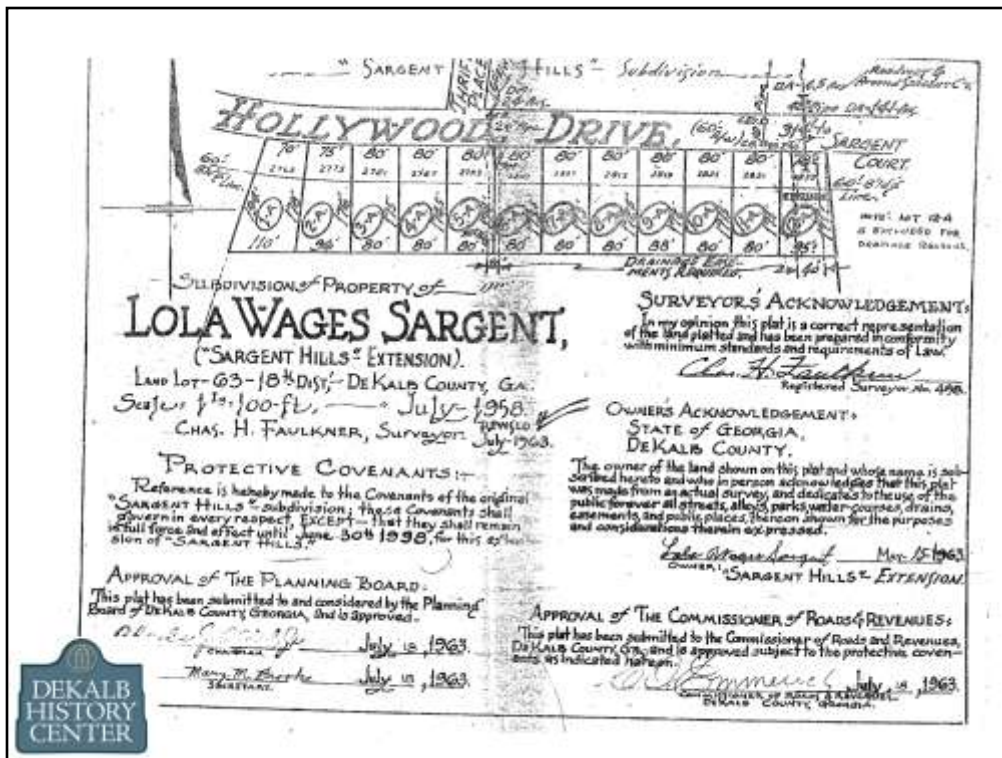 "SARGENT HILLS" - Subdivision
THRIF
PLACE
HOLLYWOOD DRIVE,
SARGENT
COURT.
70' 75' 80' 80' 80' 80' 80' 80' 80' 80' 80'
2-A 3-A 4-A 5-A 10-A 11-A
110' 96' 80' 80' 80' 80' 80' 80' 88' 80' 80'
LOT 12-A
DRAINAGE EASE-
MENTS REQUIRED.
SUBDIVISION of PROPERTY of
LOLA WAGES SARGENT,
("SARGENT HILLS" EXTENSION).
LAND LOT-63-18th DIST,- DEKALB COUNTY, GA.
Scale, 1 In.-100-ft. July-1958.
CHAS. H. FAULKNER, Surveyor July-1963.
PROTECTIVE COVENANTS:-
Reference is hereby made to the Covenants of the original
"SARGENT HILLS"-subdivision; these Covenants shall
govern in every respect, EXCEPT- that they shall remain
in full force and effect until June 30th 1998, for this exten-
sion of "SARGENT HILLS."
APPROVAL of THE PLANNING BOARD:
This plat has been submitted to and considered by the Planning
Board of DEKALB COUNTY, GEORGIA, and is approved.
CHAIRMAN July 18, 1963.
Mary M. Brooke July 18, 1963.
SECRETARY.
SURVEYORS' ACKNOWLEDGEMENT:
In my opinion this plat is a correct representation
of the land platted and has been prepared in conformity
with minimum standards and requirements of Law.
Chas. H. Faulkner
Registered Surveyor No.
OWNER'S ACKNOWLEDGEMENT:
STATE OF GEORGIA,
DEKALB COUNTY.
The owner of the land shown on this plat and whose name is sub-
scribed hereto and who in person acknowledges that this plat
was made from an actual survey, and dedicates to the use of the
public forever all streets, alleys, parks, water-courses, drains,
easements, and public places, thereon shown for the purposes
and considerations therein expressed.
Lola Wages Sargent 1963.
OWNER: "SARGENT HILLS" EXTENSION.
APPROVAL of THE COMMISSIONER of ROADS & REVENUES:
This plat has been submitted to the Commissioner of Roads and Revenues,
DE KALB COUNTY, GA., and is approved subject to the protective coven-
ants as indicated hereon.
July 18, 1963.
COMMISSIONER OF ROADS & REVENUES
DEKALB COUNTY, GEORGIA.
DEKALB
HISTORY
CENTER